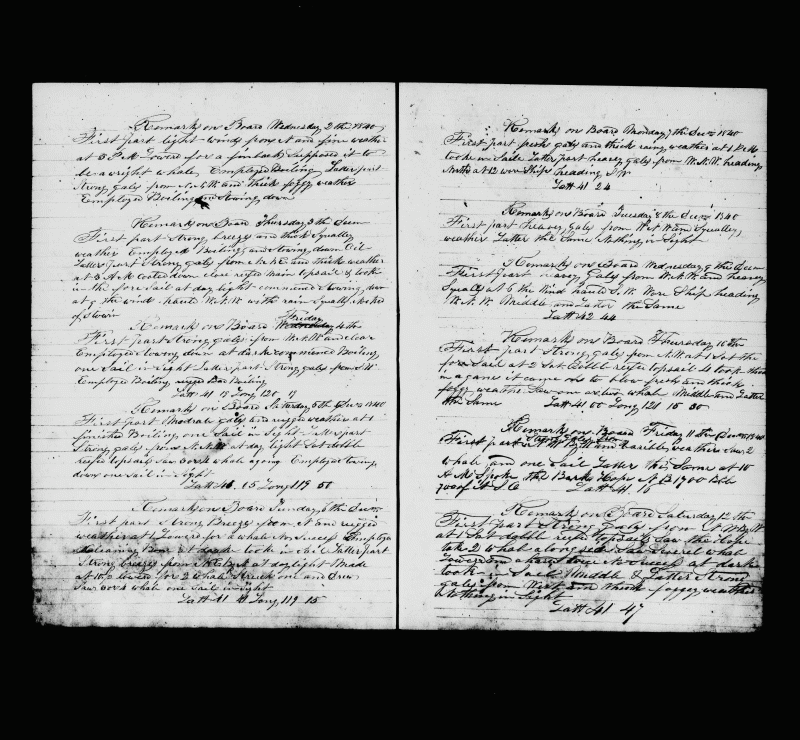 Remarks on Board Wednesday 2 the 1840
First part light winds from N and fine weather
at 3 P.M. Lowered for a finback Supposed it to
be a wright whale Employed Boiling Latter part
Strong gales from and thick foggy weather
Employed Boiling and Stowing down
Remarks on Board Thursday 3 the
First part Strong breezes and thick Squalley
weather Employed Boiling and Stowing down Oil
Latter part Strong gales from and thick weather
at 3 A.M. down close reefed main topsail & took
in the fore Sail at day light commenced Stowing down
at 9 the wind hauld W.N.W with rain Squalls
Friday
Remarks on Board Wednesday 4 the
First part Strong gales from W.N.W and clear
Employed Stowing down at dark commenced Boiling
one Sail in Sight Latter part Strong gales from S.W
Employed Boiling rugged Bad Boiling
Latt 41 17 Long 120 17
Remarks on Board Saturday 5 th 1840
First part Modrate gales and rugged weather at 1
finished Boiling one Sail in Sight Latter part
Strong gales from at day light Set dobble
reefed topsails Saw whale agoing Employed Stowing
down one Sail in Sight
Latt 41 05 Long 119 50
Remarks on Board Sunday 6 the
First part Strong Breezes from N and rugged
weather at 1 Lowered for a whale No Success Employed
Cleaning Bone at dark took in Sail Latter part
Strong breezes from at day light Made
at 10 lowered for 2 whale Struck one and Drew
Saw whale one Sail in Sight
Latt 41 Long 119 15
Remarks on Board Monday 7 the 1840
First part fresh gales and thick rainy weather at 1 P.M.
took in Sails Latter part heavey gales from W.N.W. heading
North at 12 wore Ship heading S.W
Latt 41 24
Remarks on Board Tuesday 8 the 1840
First part heavey gales from and Squalley
weather Latter the Same Nothing in Sight
Remarks on Board Wednesday 9 the
First part heavey Gales from W.N.W and heavey
Squalls at 6 the Wind hauld S.W. Wore Ship heading
W.N.W. Middle and Latter the Same
Latt 42 44
Remarks on Board Thursday 10 th
First part Strong gales from N.W at 1 Set the
fore Sail at 2 Set dobble reefs topsail 4 took them
in agane it came on to blow fresh and thick
foggy weather. Saw one whale Middle and Latter
the Same Latt 41 50 Long 121 15 30
Remarks on Board Friday 11 th 1840
First part and weather Saw 2
whale and one Sail Latter the Same at 10
A.M. Spoke the Bark Hope N.B 1700 Bbls
Latt 41 16
Remarks on Board Saturday 12 th
First part Strong gales from
at 1 Set dobble reefs topsails Saw the Hope
take 2 whale along side Saw Several whale
Lowered No Success at dark
took in Sails Middle & Latter Strong
gales from West and thick foggy weather
Nothing in Sight
Latt 41 47